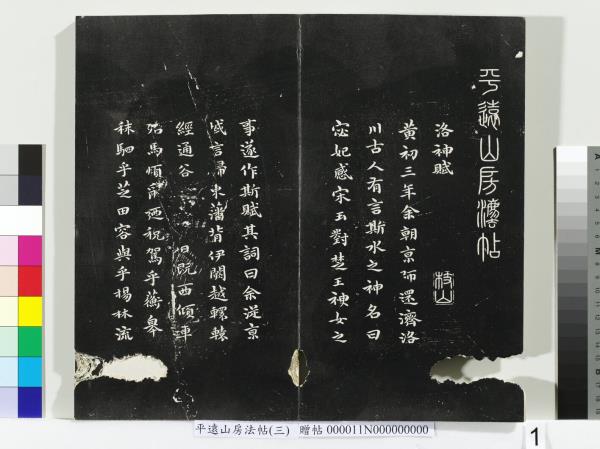 平遠山房法帖
枝山
洛神賦
黃初三年余朝京師還濟洛
川古人有言斯水之神名曰
宓妃感宋玉對楚王神女之
事遂作斯賦其詞曰余從京
域言歸東藩背伊闕越轘轅
經通谷 日既西傾車
殆馬煩爾迺税駕乎蘅皋
秣駟乎芝田容與乎楊林流
平遠山房法帖(三) 贈帖 000011N000000000
1